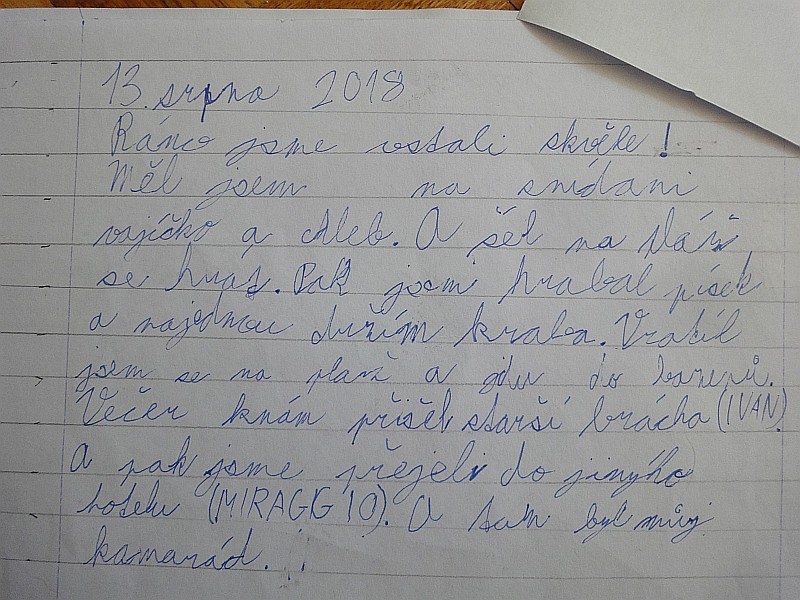 13. srpna 2018
Ráno jsme vstali skvěle!
Měl jsem na snídani
vajíčko a chleb. A šel na pláž
se hrát. Pak jsem hrabal písek
a najednou držím kraba. Vrátil
jsem se na pláž a jdu do bazénů.
Večer knám přišel starší brácha (IVAN)
A pak jsme přejeli do jinýho
hotelu (MIRAGGIO). A tam byl můj
kamarád...